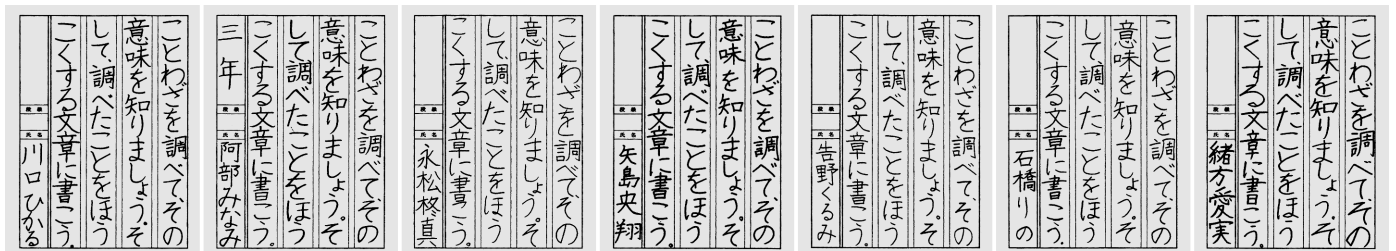 ことわざを調べて、その
意味を知りましょう。そ
して、調べたことをほう
こくする文章に書こう。
段級
氏名
川口ひかる
ことわざを調べて、その
意味を知りましょう。そ
して、調べたことをほう
こくする文章に書こう。
三年
段級
氏名
阿部みなみ
ことわざを調べて、その
意味を知りましょう。そ
して、調べたことをほう
こくする文章に書こう。
段級
氏名
永松柊真
ことわざを調べて、その
意味を知りましょう。そ
して、調べたことをほう
こくする文章に書こう。
段級
氏名
矢島央翔
ことわざを調べて、その
意味を知りましょう。そ
して、調べたことをほう
こくする文章に書こう。
段級
氏名
吉野くるみ
ことわざを調べて、その
意味を知りましょう。そ
して、調べたことをほう
こくする文章に書こう。
段級
氏名
石橋りの
ことわざを調べて、その
意味を知りましょう。そ
して、調べたことをほう
こくする文章に書こう。
段級
氏名
緒方愛実